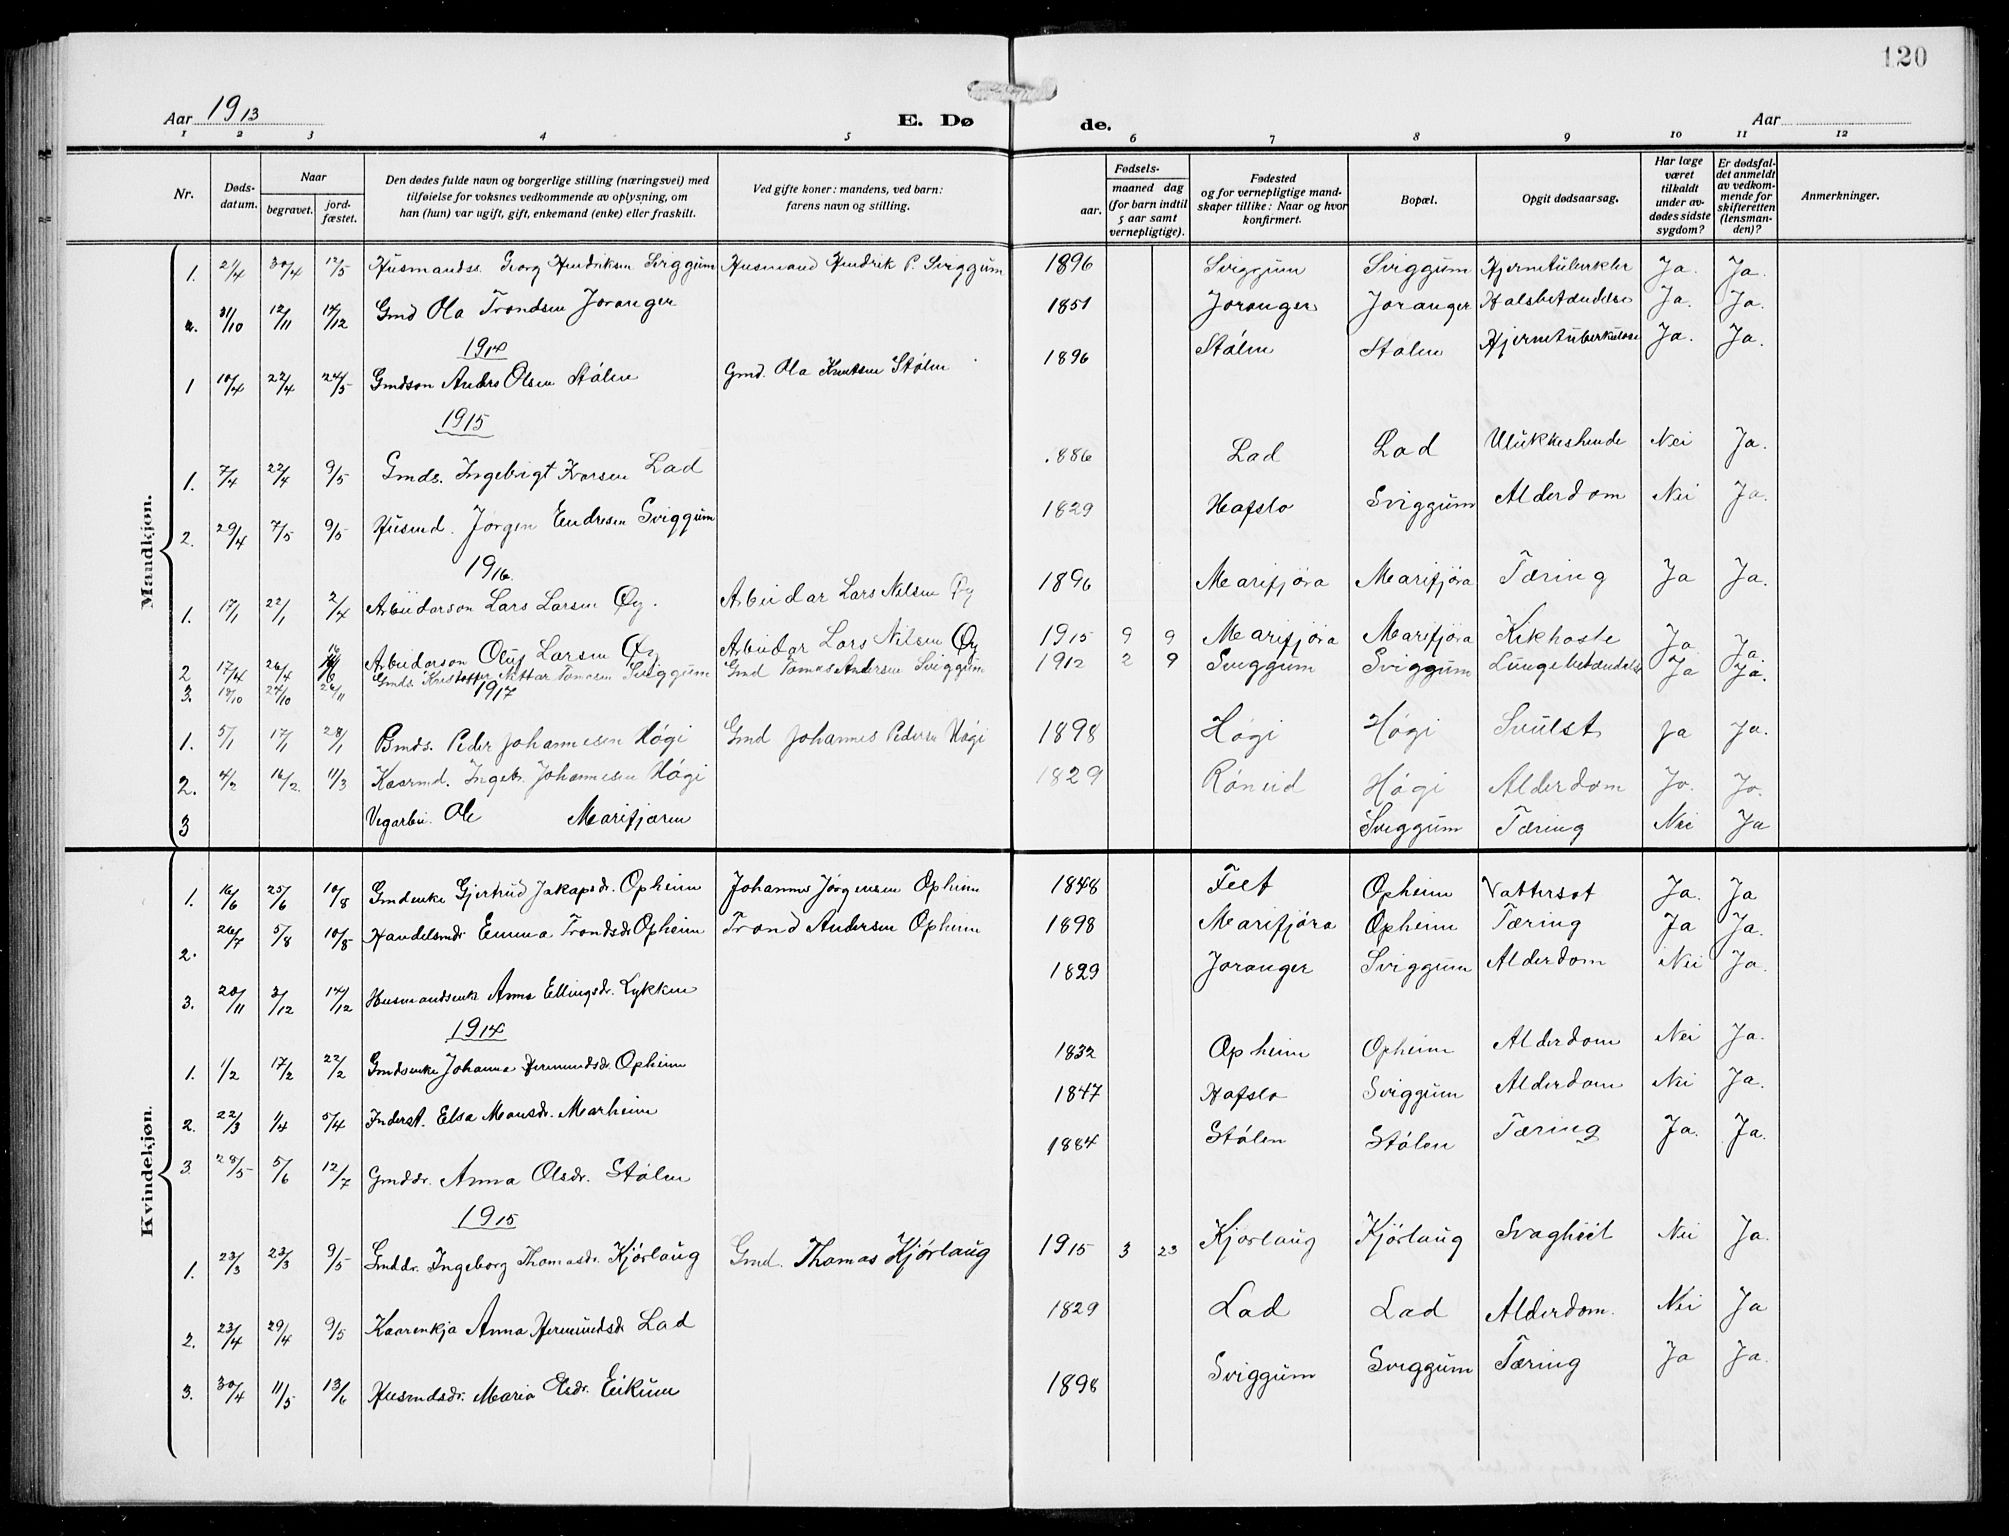 120
Aar 1913 E. Dø de. Aar
1 2 3 4 5 6 7 8 9 10 11 12
Nr. Døds-datum. Naar begravet. jord-fæstet. Den dødes fulde navn og borgerlige stilling (næringsvei) med tilføielse for voksnes vedkommende av oplysning, om han (hun) var ugift, gift, enkemand (enke) eller fraskilt. Ved gifte koner: mandens, ved barn: farens navn og stilling. Fødsels- aar. maaned dag (for barn indtil 5 aar samt vernepligtige). Fødested og for vernepligtige mand-skaper tillike: Naar og hvor konfirmert. Bopæl. Opgit dødsaarsag. Har læge været tilkaldt under av-dødes sidste sygdom? Er dødsfal-det anmeldt av vedkom-mende for skifteretten (lensman-den)? Anmerkninger.
Mandkjøn.
1. 21/4 30/4 12/5 Husmandss. Georg Hendriksen Sviggum Husmand Hendrik P. Sviggum 1896 Sviggum Sviggum Ja. Ja.
2. 31/10 12/11 14/12 Gmd Ola Trondsen Joranger 1851 Joranger Joranger Halsbetændelse Ja. Ja.
1914
1 10/4 22/4 24/5 Gmdson Anders Olsen Stølen Gmd. Ola Knutsen Stølen 1896 Stølen Stølen Hjernetuberkulose Ja. Ja.
1915
1. 7/4 22/4 9/5 Gmds. Ingebrigt Ivarsen Lad .886 Lad Lad Ulukkeshende Nei Ja.
2. 29/4 7/5 9/5 Husmd. Jørgen Endresen Sviggum 1829 Hafslo Sviggum Alderdom Nei Ja.
1916.
1. 17/1 22/1 2/4 Arbeidarson Lars Larsen Øy. Arbeidar Lars Nilsen Øy 1896 Marifjøra Marifjøra Tæring Ja Ja.
2 17/4 26/4 Arbeidarson Oluf Larsen Øy Arbeidar Lars Nilsen Øy 1915 9 9 Marifjøra Marifjøra Kikhoste Ja Ja.
3. 18/10 24/10 26/11 Gmds. Kristoffer Tomasen Sviggum Gmd Tomas Andersen Sviggum 1912 2 9 Sviggum Sviggum Lungebetændelse Ja Ja.
1917
1. 5/1 17/1 28/1 Bmds. Peder Johannesen Høgi Gmd Johannes Pedersen Høgi 1898 Høgi Høgi Svulst Ja Ja.
2. 4/2 16/2 11/3 Kaarmd. Ingebr. Johannesen Høgi 1829 Røneid Høgi Alderdom Ja. Ja.
3 Vegarbei. Ole Marifjøren Sviggum Tæring Nei Ja
Kvindekjøn.
1. 16/6 25/6 10/8 Gmdenke Gjertrud Jakapsdr. Opheim Johannes Jørgensen Opheim 1848 Feet Opheim Vattersot Ja. Ja
2. 26/7 5/8 10/8 Handelsmdr Emma Trondsdr Opheim Trond Andersen Opheim 1898 Marifjøra Opheim Tæring Ja Ja.
3. 20/11 3/12 14/12 Husmandsenk Anna Ellingsdr. Lykken 1829 Joranger Sviggum Alderdom Nei Ja.
1914
1. 1/2 17/2 22/2 Gmdsenke Johanna Hermundsdr. Opheim 1832 Opheim Opheim Alderdom Nei Ja.
2. 22/3 1/4 5/4 Inderst. Elsa Monsdr. Marheim 1847 Hafslo Sviggum Alderdom Nei Ja.
3. 28/5 5/6 12/7 Gmddr. Anna Olsdr. Stølen 1884 Stølen Stølen Tæring Ja. Ja.
1915
1. 23/3 23/3 9/5 Gmddr. Ingeborg Thomasdr. Kjørlaug Gmd. Thomas Kjørlaug 1915 3 23 Kjørlaug Kjørlaug Svagheit Nei Ja.
2. 23/4 29/4 9/5 Kaarenkja Anna Hermundsdr Lad 1829 Lad Lad Alderdom. Nei Ja
3. 30/4 11/5 13/6 Husmdsdr. Maria Olsdr. Eikum 1898 Sviggum Sviggum Tæring Ja Ja.